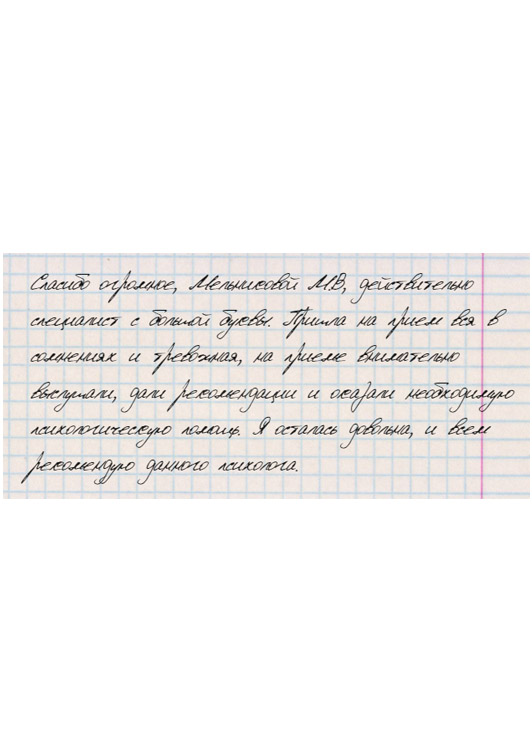 Спасибо огромное, Мельниковой М.В, действительно
специалист с большой буквы. Пришла на прием вся в
сомнениях и тревожная, на приеме внимательно
выслушали, дали рекомендации и оказали необходимую
психологическую помощь. Я осталась довольна, и всем
рекомендую данного психолога.